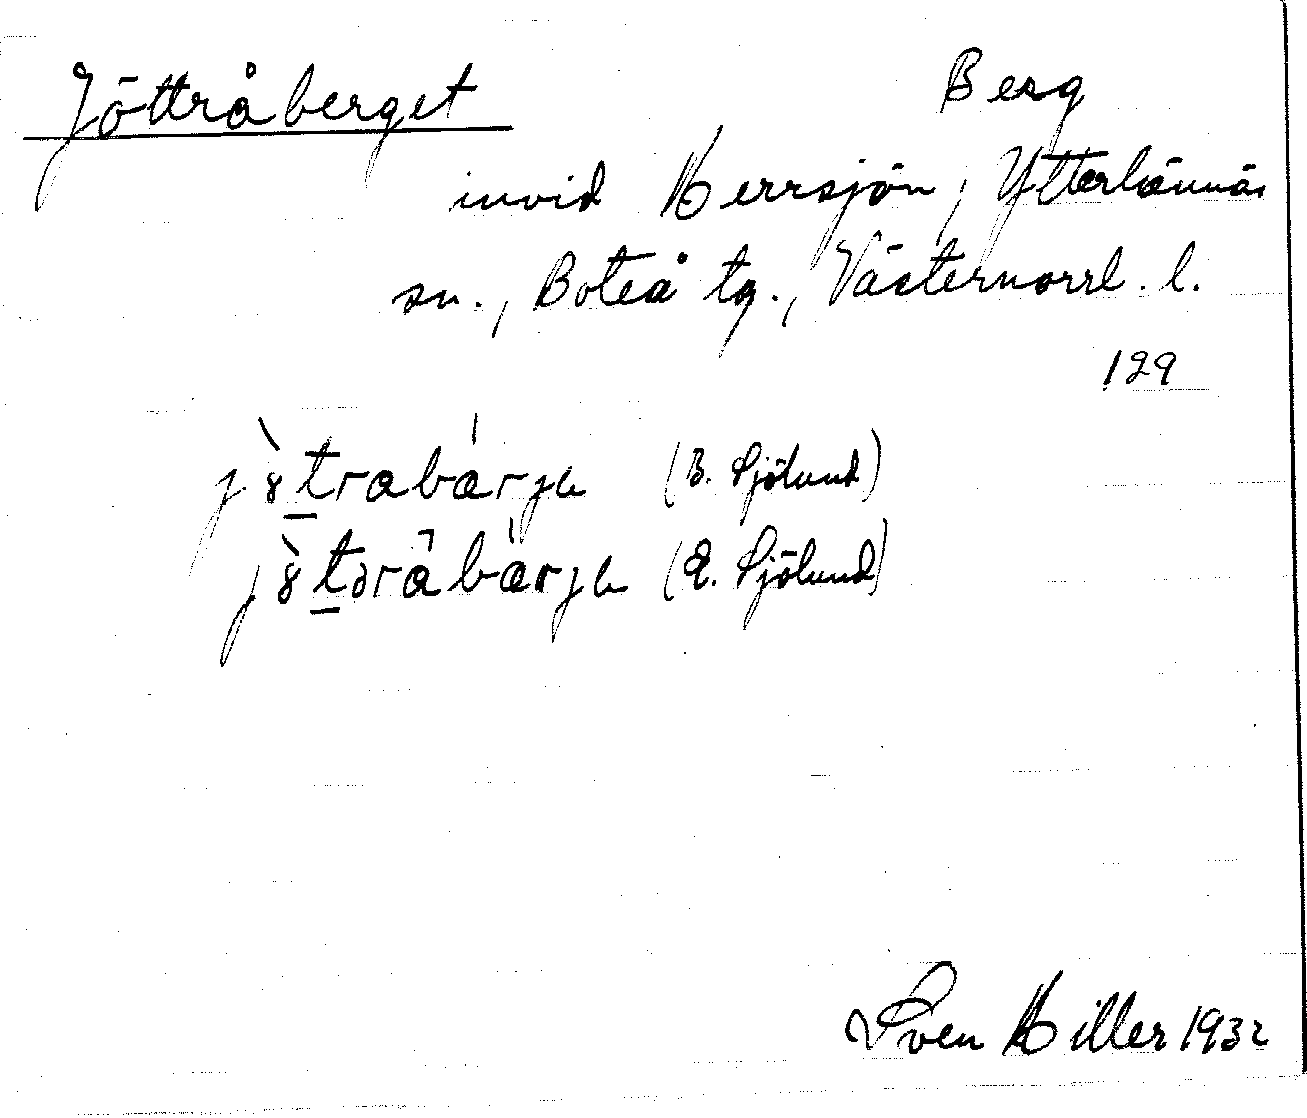 Jöttråberget Berg
invid Herrsjön, Ytterlännäs
sn., Boteå tg., Västernorrl. l.
129
(B. Sjölund)
(E. Sjölund)
Sven Hiller 1932